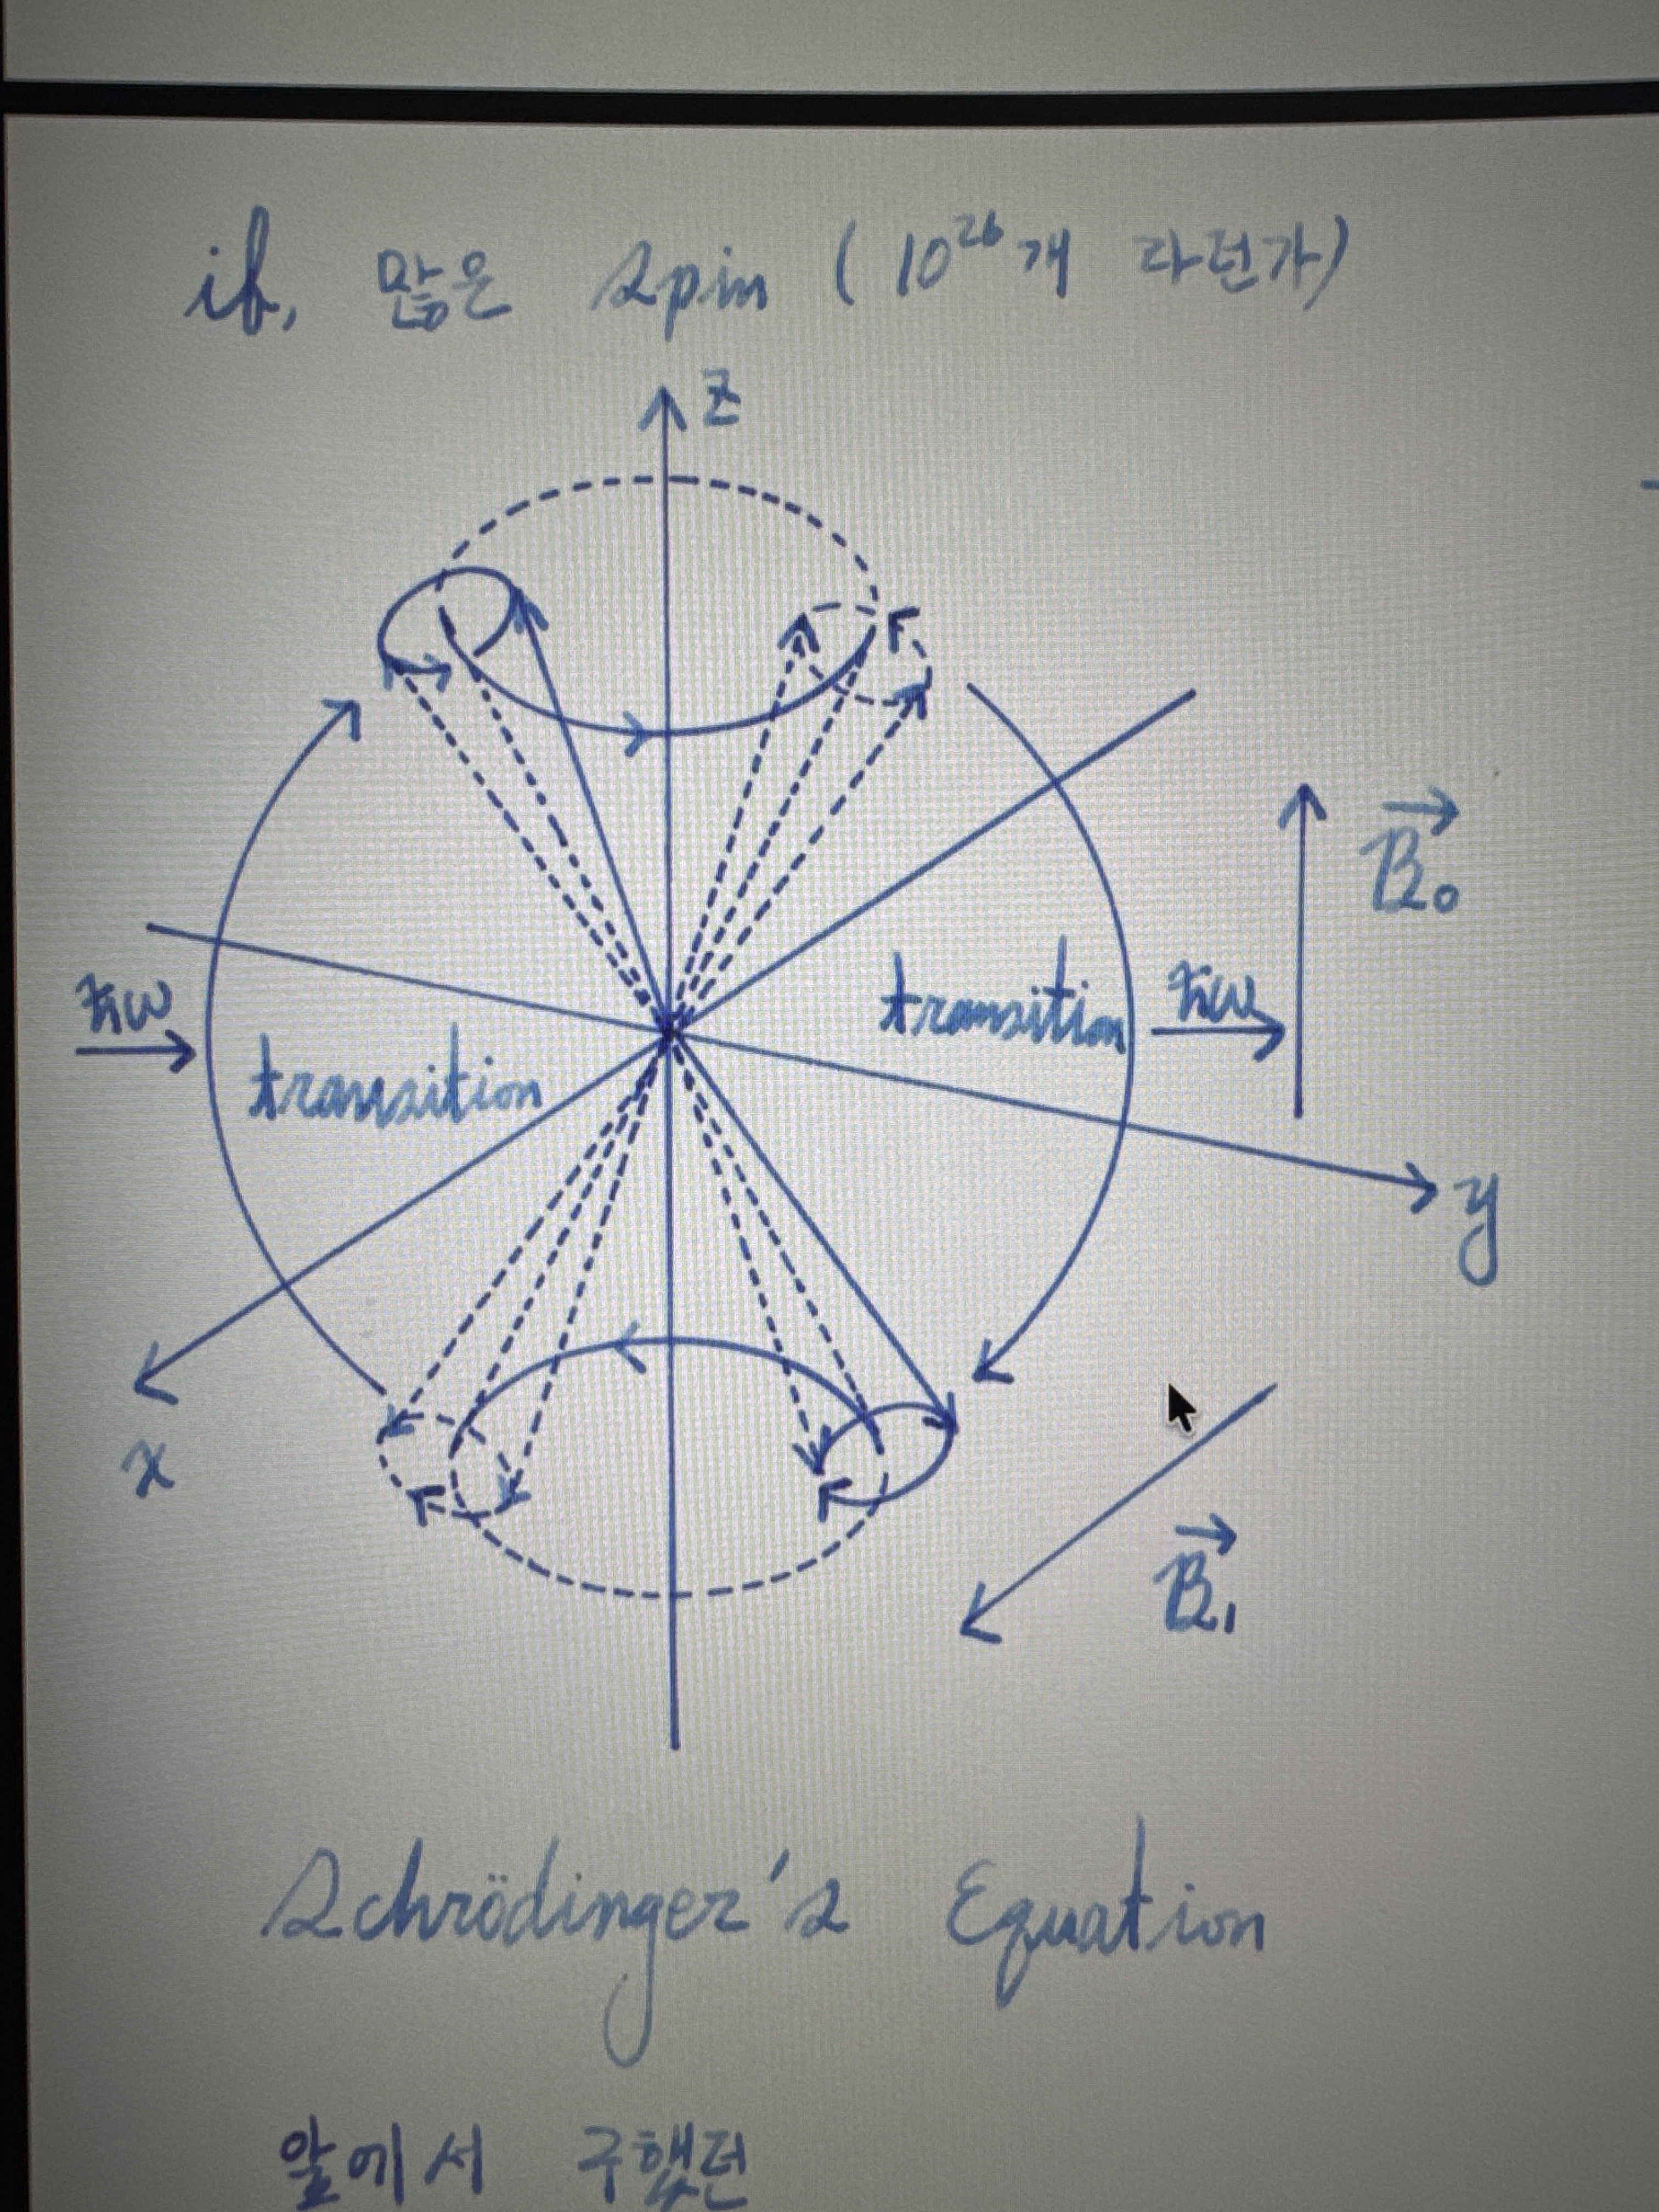 if, 많은 spin ( 10²⁶개 라던가)
z
B₀
ħω
transition
transition
ħω
y
x
B₁
Schrödinger's Equation
앞에서 구했던